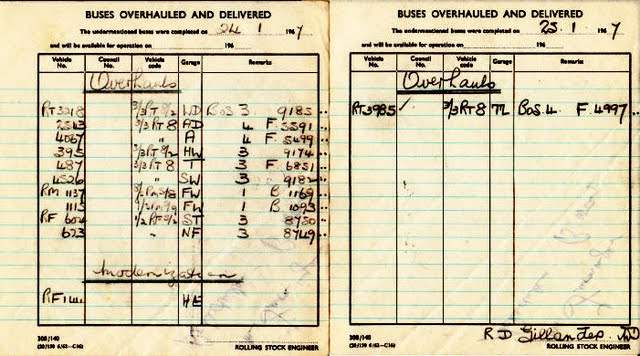 BUSES OVERHAULED AND DELIVERED
The undermentioned buses were completed on 24 1 1967
and will be available for operation on 196
Vehicle No. Council No. Vehicle code Garage Remarks
Overhauls
RT3218 3/3RT8/2 WD BOS 3 9185
2543 3/3RT8 AD 4 F. 5591
4067 " A 4 F 5499
395 3/3RT8/2 HW 3 9174
487 3/3RT8 T 3 F 6851
4526 " SW 3 9182
RM 1137 FW 1 B 1169
1115 FW 1 B 1093
RF 604 ST 2 8750
673 " NF 3 8749
Modernization
RF 144 HE
308/140
(20/150 6/63-C16) ROLLING STOCK ENGINEER
BUSES OVERHAULED AND DELIVERED
The undermentioned buses were completed on 25 1 1967
and will be available for operation on 196
Vehicle No. Council No. Vehicle code Garage Remarks
Overhauls
RT3985 / 3/3RT8 TL BOS.4 F. 4997
308/140 R D
(20/150 6/63-C16) ROLLING STOCK ENGINEER